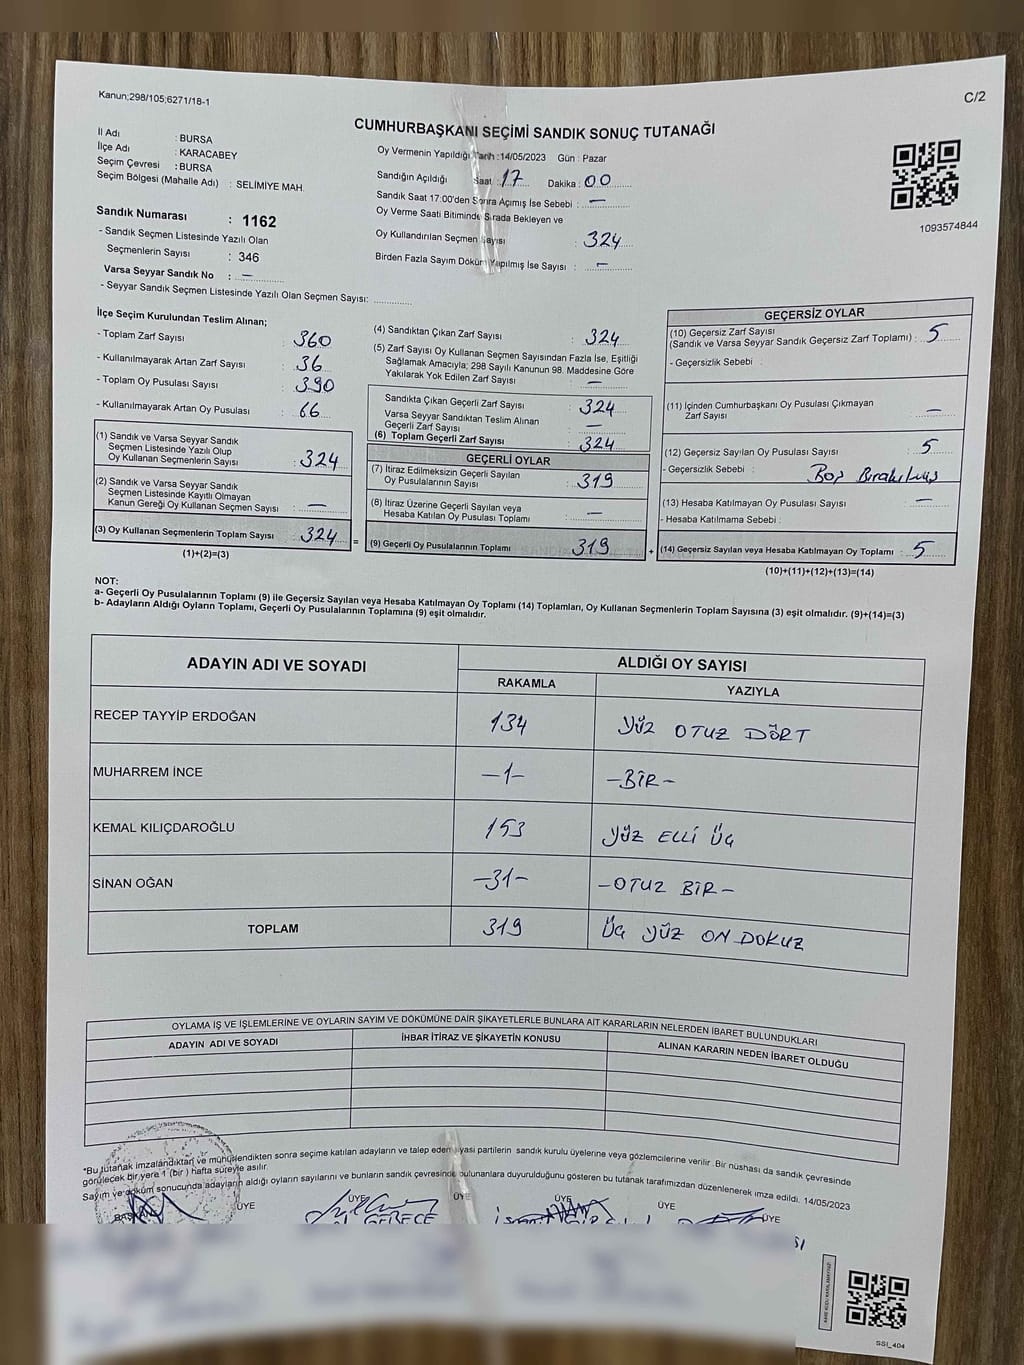 Kanun;298/105;6271/18-1
C/2
CUMHURBAŞKANI SEÇİMİ SANDIK SONUÇ TUTANAĞI
İl Adı : BURSA
İlçe Adı : KARACABEY
Seçim Çevresi : BURSA
Seçim Bölgesi (Mahalle Adı) : SELİMİYE MAH.
Sandık Numarası : 1162
- Sandık Seçmen Listesinde Yazılı Olan
Seçmenlerin Sayısı : 346
Varsa Seyyar Sandık No : —
- Seyyar Sandık Seçmen Listesinde Yazılı Olan Seçmen Sayısı: ............
Oy Vermenin Yapıldığı Tarih :14/05/2023 Gün : Pazar
Sandığın Açıldığı Saat : 17 Dakika : 00
Sandık Saat 17:00'den Sonra Açımış İse Sebebi : —
Oy Verme Saati Bitiminde Sırada Bekleyen ve
Oy Kullandırılan Seçmen Sayısı : 324
Birden Fazla Sayım Döküm Yapılmış İse Sayısı : —
1093574844
İlçe Seçim Kurulundan Teslim Alınan;
- Toplam Zarf Sayısı : 360
- Kullanılmayarak Artan Zarf Sayısı : 36
- Toplam Oy Pusulası Sayısı : 390
- Kullanılmayarak Artan Oy Pusulası : 66
(1) Sandık ve Varsa Seyyar Sandık
Seçmen Listesinde Yazılı Olup
Oy Kullanan Seçmenlerin Sayısı : 324
(2) Sandık ve Varsa Seyyar Sandık
Seçmen Listesinde Kayıtlı Olmayan
Kanun Gereği Oy Kullanan Seçmen Sayısı : —
(3) Oy Kullanan Seçmenlerin Toplam Sayısı : 324
(1)+(2)=(3)
(4) Sandıktan Çıkan Zarf Sayısı : 324
(5) Zarf Sayısı Oy Kullanan Seçmen Sayısından Fazla İse, Eşitliği
Sağlamak Amacıyla; 298 Sayılı Kanunun 98. Maddesine Göre
Yakılarak Yok Edilen Zarf Sayısı : —
Sandıkta Çıkan Geçerli Zarf Sayısı : 324
Varsa Seyyar Sandıktan Teslim Alınan
Geçerli Zarf Sayısı : —
(6) Toplam Geçerli Zarf Sayısı : 324
GEÇERLİ OYLAR
(7) İtiraz Edilmeksizin Geçerli Sayılan
Oy Pusulalarının Sayısı : 319
(8) İtiraz Üzerine Geçerli Sayılan veya
Hesaba Katılan Oy Pusulası Toplamı : —
= (9) Geçerli Oy Pusulalarının Toplamı : 319 +
GEÇERSİZ OYLAR
(10) Geçersiz Zarf Sayısı
(Sandık ve Varsa Seyyar Sandık Geçersiz Zarf Toplamı) : 5
- Geçersizlik Sebebi :
(11) İçinden Cumhurbaşkanı Oy Pusulası Çıkmayan
Zarf Sayısı : —
(12) Geçersiz Sayılan Oy Pusulası Sayısı : 5
- Geçersizlik Sebebi : Boş Bırakılmış
(13) Hesaba Katılmayan Oy Pusulası Sayısı : —
- Hesaba Katılmama Sebebi :
(14) Geçersiz Sayılan veya Hesaba Katılmayan Oy Toplamı : 5
(10)+(11)+(12)+(13)=(14)
NOT:
a- Geçerli Oy Pusulalarının Toplamı (9) ile Geçersiz Sayılan veya Hesaba Katılmayan Oy Toplamı (14) Toplamları, Oy Kullanan Seçmenlerin Toplam Sayısına (3) eşit olmalıdır. (9)+(14)=(3)
b- Adayların Aldığı Oyların Toplamı, Geçerli Oy Pusulalarının Toplamına (9) eşit olmalıdır.
ADAYIN ADI VE SOYADI ALDIĞI OY SAYISI
RAKAMLA YAZIYLA
RECEP TAYYİP ERDOĞAN 134 YÜZ OTUZ DÖRT
MUHARREM İNCE —1— —BİR—
KEMAL KILIÇDAROĞLU 153 YÜZ ELLİ ÜÇ
SİNAN OĞAN —31— —OTUZ BİR—
TOPLAM 319 ÜÇ YÜZ ON DOKUZ
OYLAMA İŞ VE İŞLEMLERİNE VE OYLARIN SAYIM VE DÖKÜMÜNE DAİR ŞİKAYETLERLE BUNLARA AİT KARARLARIN NELERDEN İBARET BULUNDUKLARI
ADAYIN ADI VE SOYADI İHBAR İTİRAZ VE ŞİKAYETİN KONUSU ALINAN KARARIN NEDEN İBARET OLDUĞU
*Bu tutanak imzalandıktan ve mühürlendikten sonra seçime katılan adayların ve talep eden siyasi partilerin sandık kurulu üyelerine veya gözlemcilerine verilir. Bir nüshası da sandık çevresinde
görülecek bir yere 1 (bir) hafta süreyle asılır.
Sayım ve döküm sonucunda adayların aldığı oyların sayılarını ve bunların sandık çevresinde bulunanlara duyurulduğunu gösteren bu tutanak tarafımızdan düzenlenerek imza edildi. 14/05/2023
BAŞKAN ÜYE ÜYE ÜYE ÜYE ÜYE ÜYE
SSİ_404